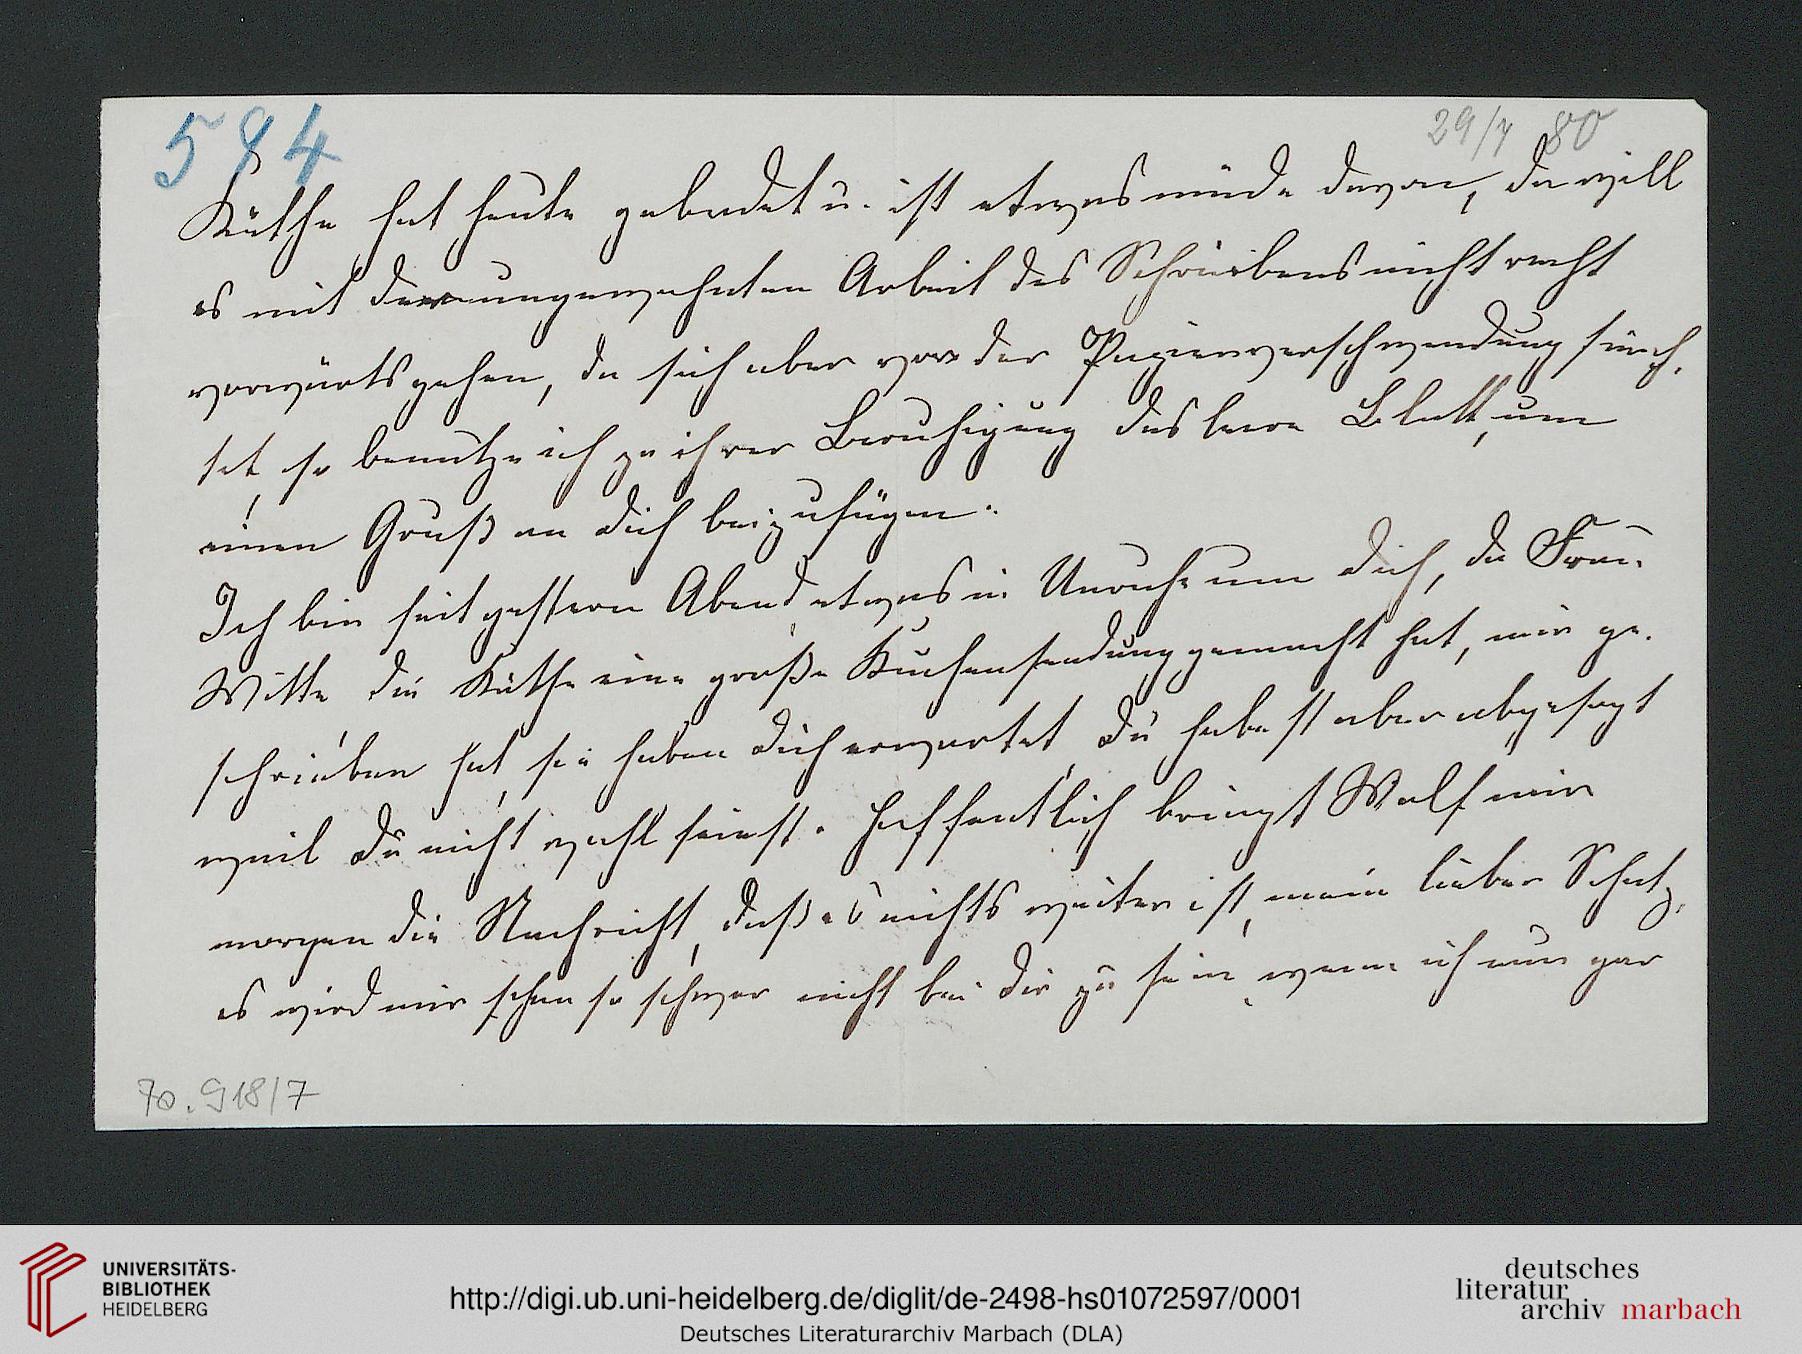 584
29/7 80
Käthe hat heute gebadet u. ist etwas müde davon, da will
es mit der ungewohnten Arbeit des Schreibens nicht recht
vorwärts gehen, da sich aber vor der Papierverschwendung fürch-
tet, so benutze ich zu ihrer Beruhigung das leere Blatt, um
einen Gruß an Dich beizufügen.
Ich bin seit gestern Abend etwas in Unruhe um Dich, da Frau
Witte die Käthe eine große Kuchensendung gemacht hat, mir ge-
schrieben hat, sie haben Dich erwartet, Du habest aber abgesagt
weil Du nicht wohl seiest. Hoffentlich bringt Wolf mir
morgen die Nachricht, daß es nichts weiter ist, mein lieber Schatz,
es wird mir schon so schwer nicht bei Dir zu sein, wenn ich nun gar
70.918/7
UNIVERSITÄTS-
BIBLIOTHEK
HEIDELBERG
http://digi.ub.uni-heidelberg.de/diglit/de-2498-hs01072597/0001
Deutsches Literaturarchiv Marbach (DLA)
deutsches
literatur
archiv marbach